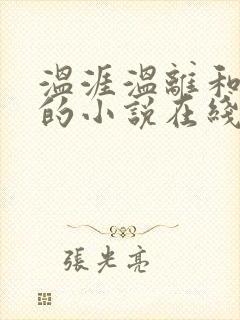 温涯温離和
的小說在綫
張光亮